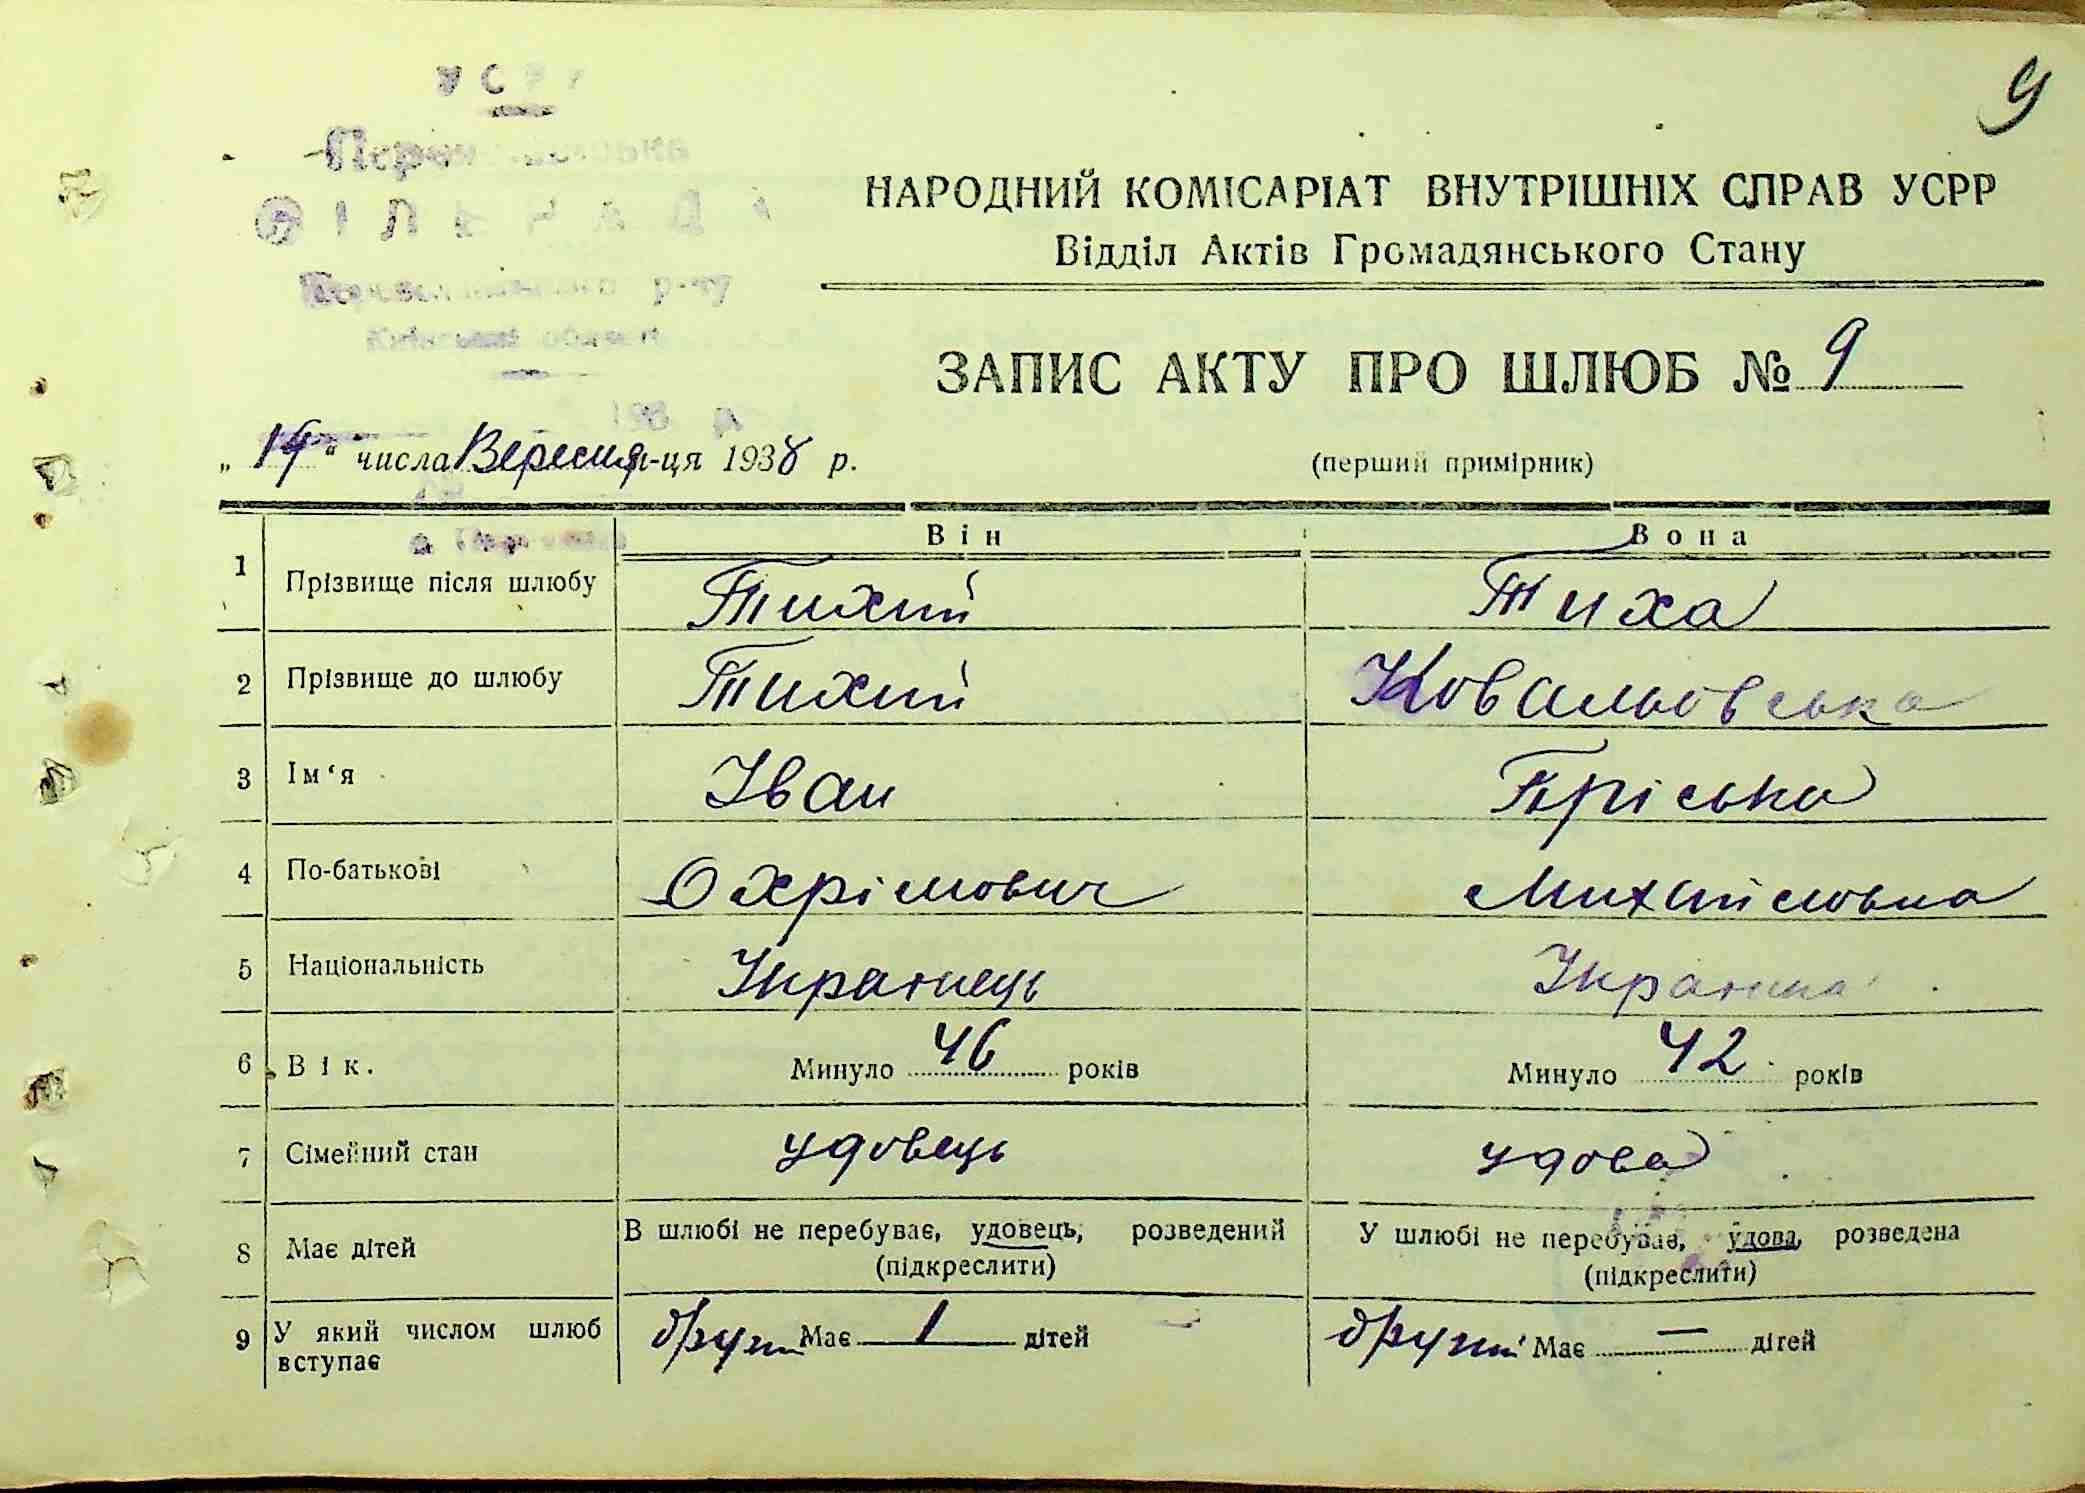 9
УСРР
НАРОДНИЙ КОМІСАРІАТ ВНУТРІШНІХ СПРАВ УСРР
Відділ Актів Громадянського Стану
р-ну
Київської області
ЗАПИС АКТУ ПРО ШЛЮБ № 9
193 р.
„14“ числа Вересня м-ця 1938 р.
(перший примірник)
Він Вона
1 Прізвище після шлюбу Тихий Тиха
2 Прізвище до шлюбу Тихий Ковальовська
3 Ім‘я Іван Пріська
4 По-батькові Охрімович Михайловна
5 Національність Українець Українка
6 Вік. Минуло 46 років Минуло 42 років
7 Сімейний стан удовець удова
8 Має дітей В шлюбі не перебуває, удовець, розведений У шлюбі не перебуває, удова, розведена
(підкреслити) (підкреслити)
9 У який числом шлюб другий Має 1 дітей другий Має — дітей
вступає